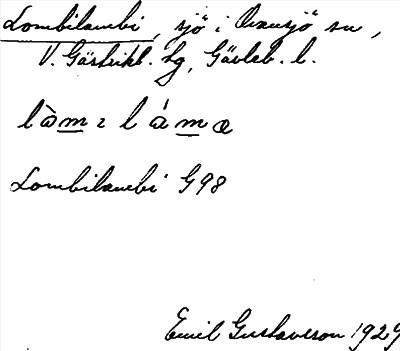 Lombilambi, sjö i Ovansjö sn,
V. Gästrikl. hg, Gävleb. l.
lòmɩlámɑ
Lombilambi G98
Emil Gustavson 1929